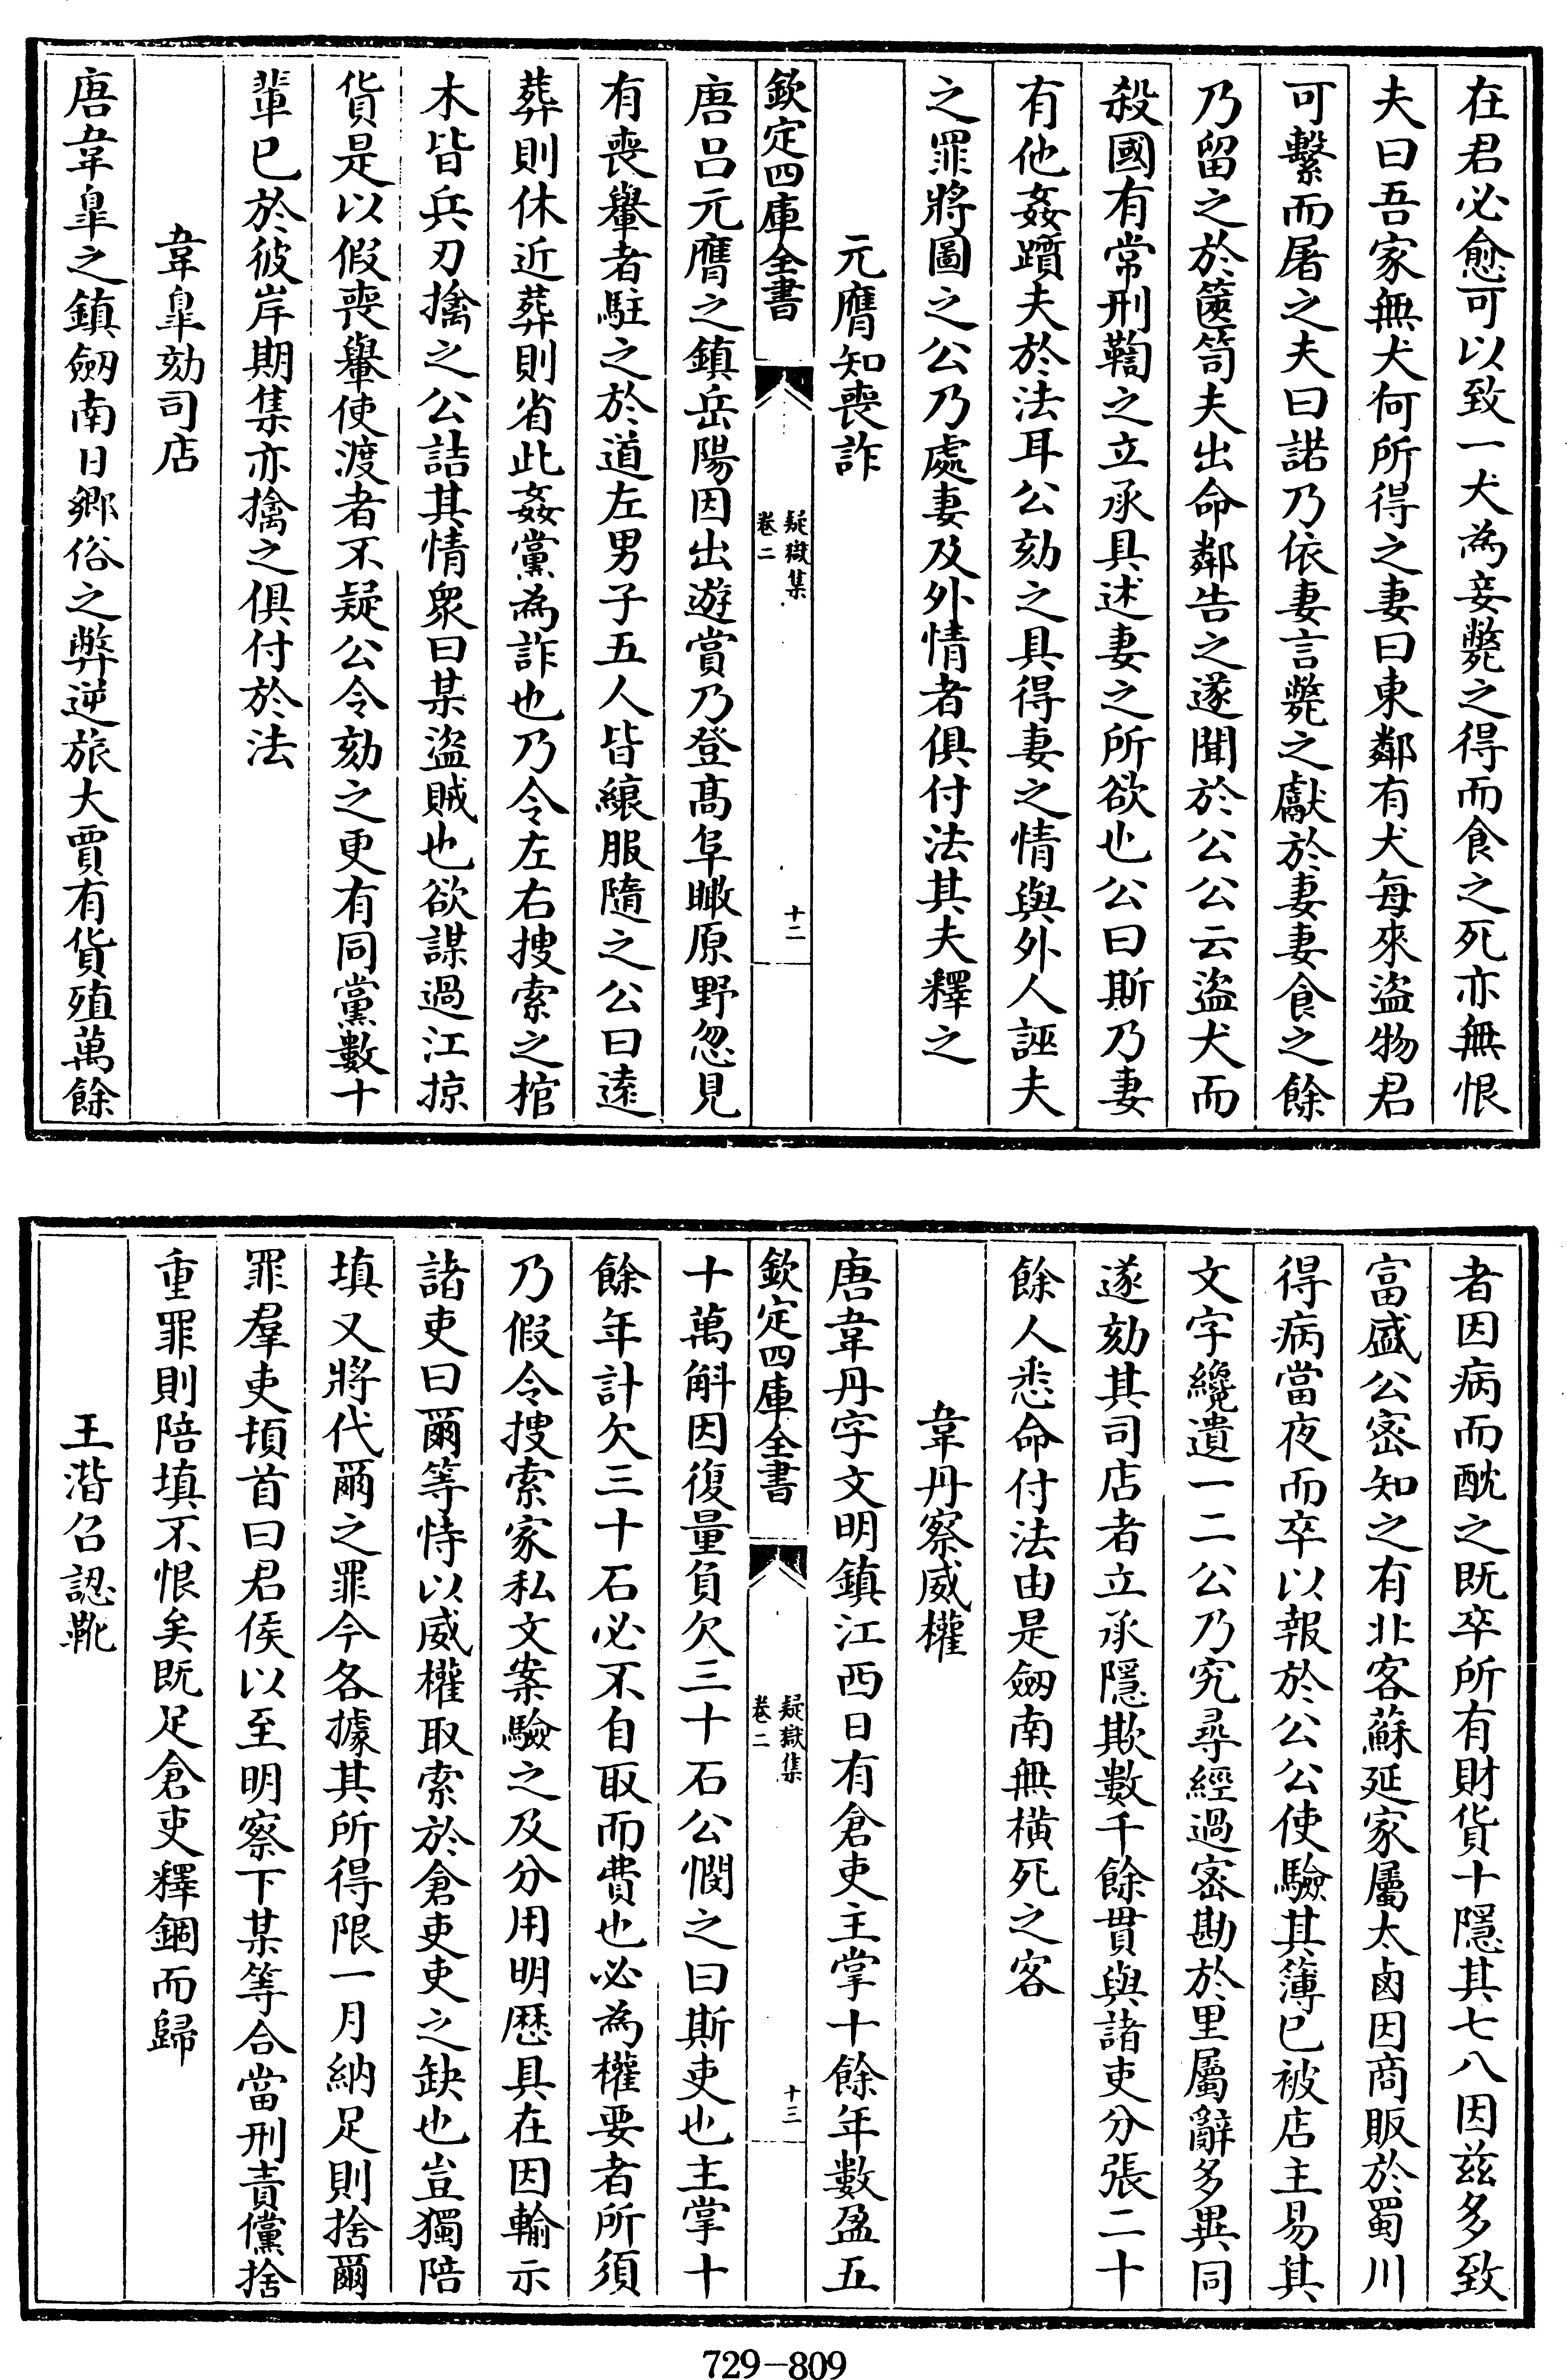 在君必愈可以致一犬為妾斃之得而食之死亦無恨
夫曰吾家無犬何所得之妻曰東鄰有犬每來盜物君
可繫而屠之夫曰諾乃依妻言斃之獻於妻妻食之餘
乃留之於篋笥夫出命鄰告之遂聞於公公云盜犬而
殺國有常刑鞫之立承具述妻之所欲也公曰斯乃妻
有他姦躓夫於法耳公劾之具得妻之情與外人誣夫
之罪將圖之公乃處妻及外情者俱付法其夫釋之
元膺知喪詐
欽定四庫全書
疑獄集
卷二
十二
唐呂元膺之鎮岳陽因出遊賞乃登髙阜瞰原野忽見
有喪轝者駐之於道左男子五人皆縗服隨之公曰逺
葬則休近葬則省此姦黨為詐也乃令左右搜索之棺
木皆兵刃擒之公詰其情衆曰某盜賊也欲謀過江掠
貨是以假喪轝使渡者不疑公令劾之更有同黨數十
輩已於彼岸期集亦擒之俱付於法
韋臯劾司店
唐韋臯之鎮劒南日鄉俗之弊逆旅大賈有貨殖萬餘
者因病而酖之既卒所有財貨十隱其七八因兹多致
富盛公宻知之有北客蘇延家屬太鹵因商販於蜀川
得病當夜而卒以報於公公使驗其簿已被店主易其
文字纔遺一二公乃究尋經過宻勘於里屬辭多異同
遂劾其司店者立承隱欺數千餘貫與諸吏分張二十
餘人悉命付法由是劒南無橫死之客
韋丹察威權
唐韋丹字文明鎮江西日有倉吏主掌十餘年數盈五
欽定四庫全書
疑獄集
卷二
十三
十萬斛因復量負欠三十石公憫之曰斯吏也主掌十
餘年計欠三十石必不自取而費也必為權要者所須
乃假令搜索家私文案驗之及分用明歴具在因輸示
諸吏曰爾等恃以威權取索於倉吏吏之缺也豈獨陪
填又將代爾之罪今各據其所得限一月納足則捨爾
罪羣吏頓首曰君侯以至明察下某等合當刑責儻捨
重罪則陪填不恨矣既足倉吏釋錮而歸
王㴉召認靴
729-809